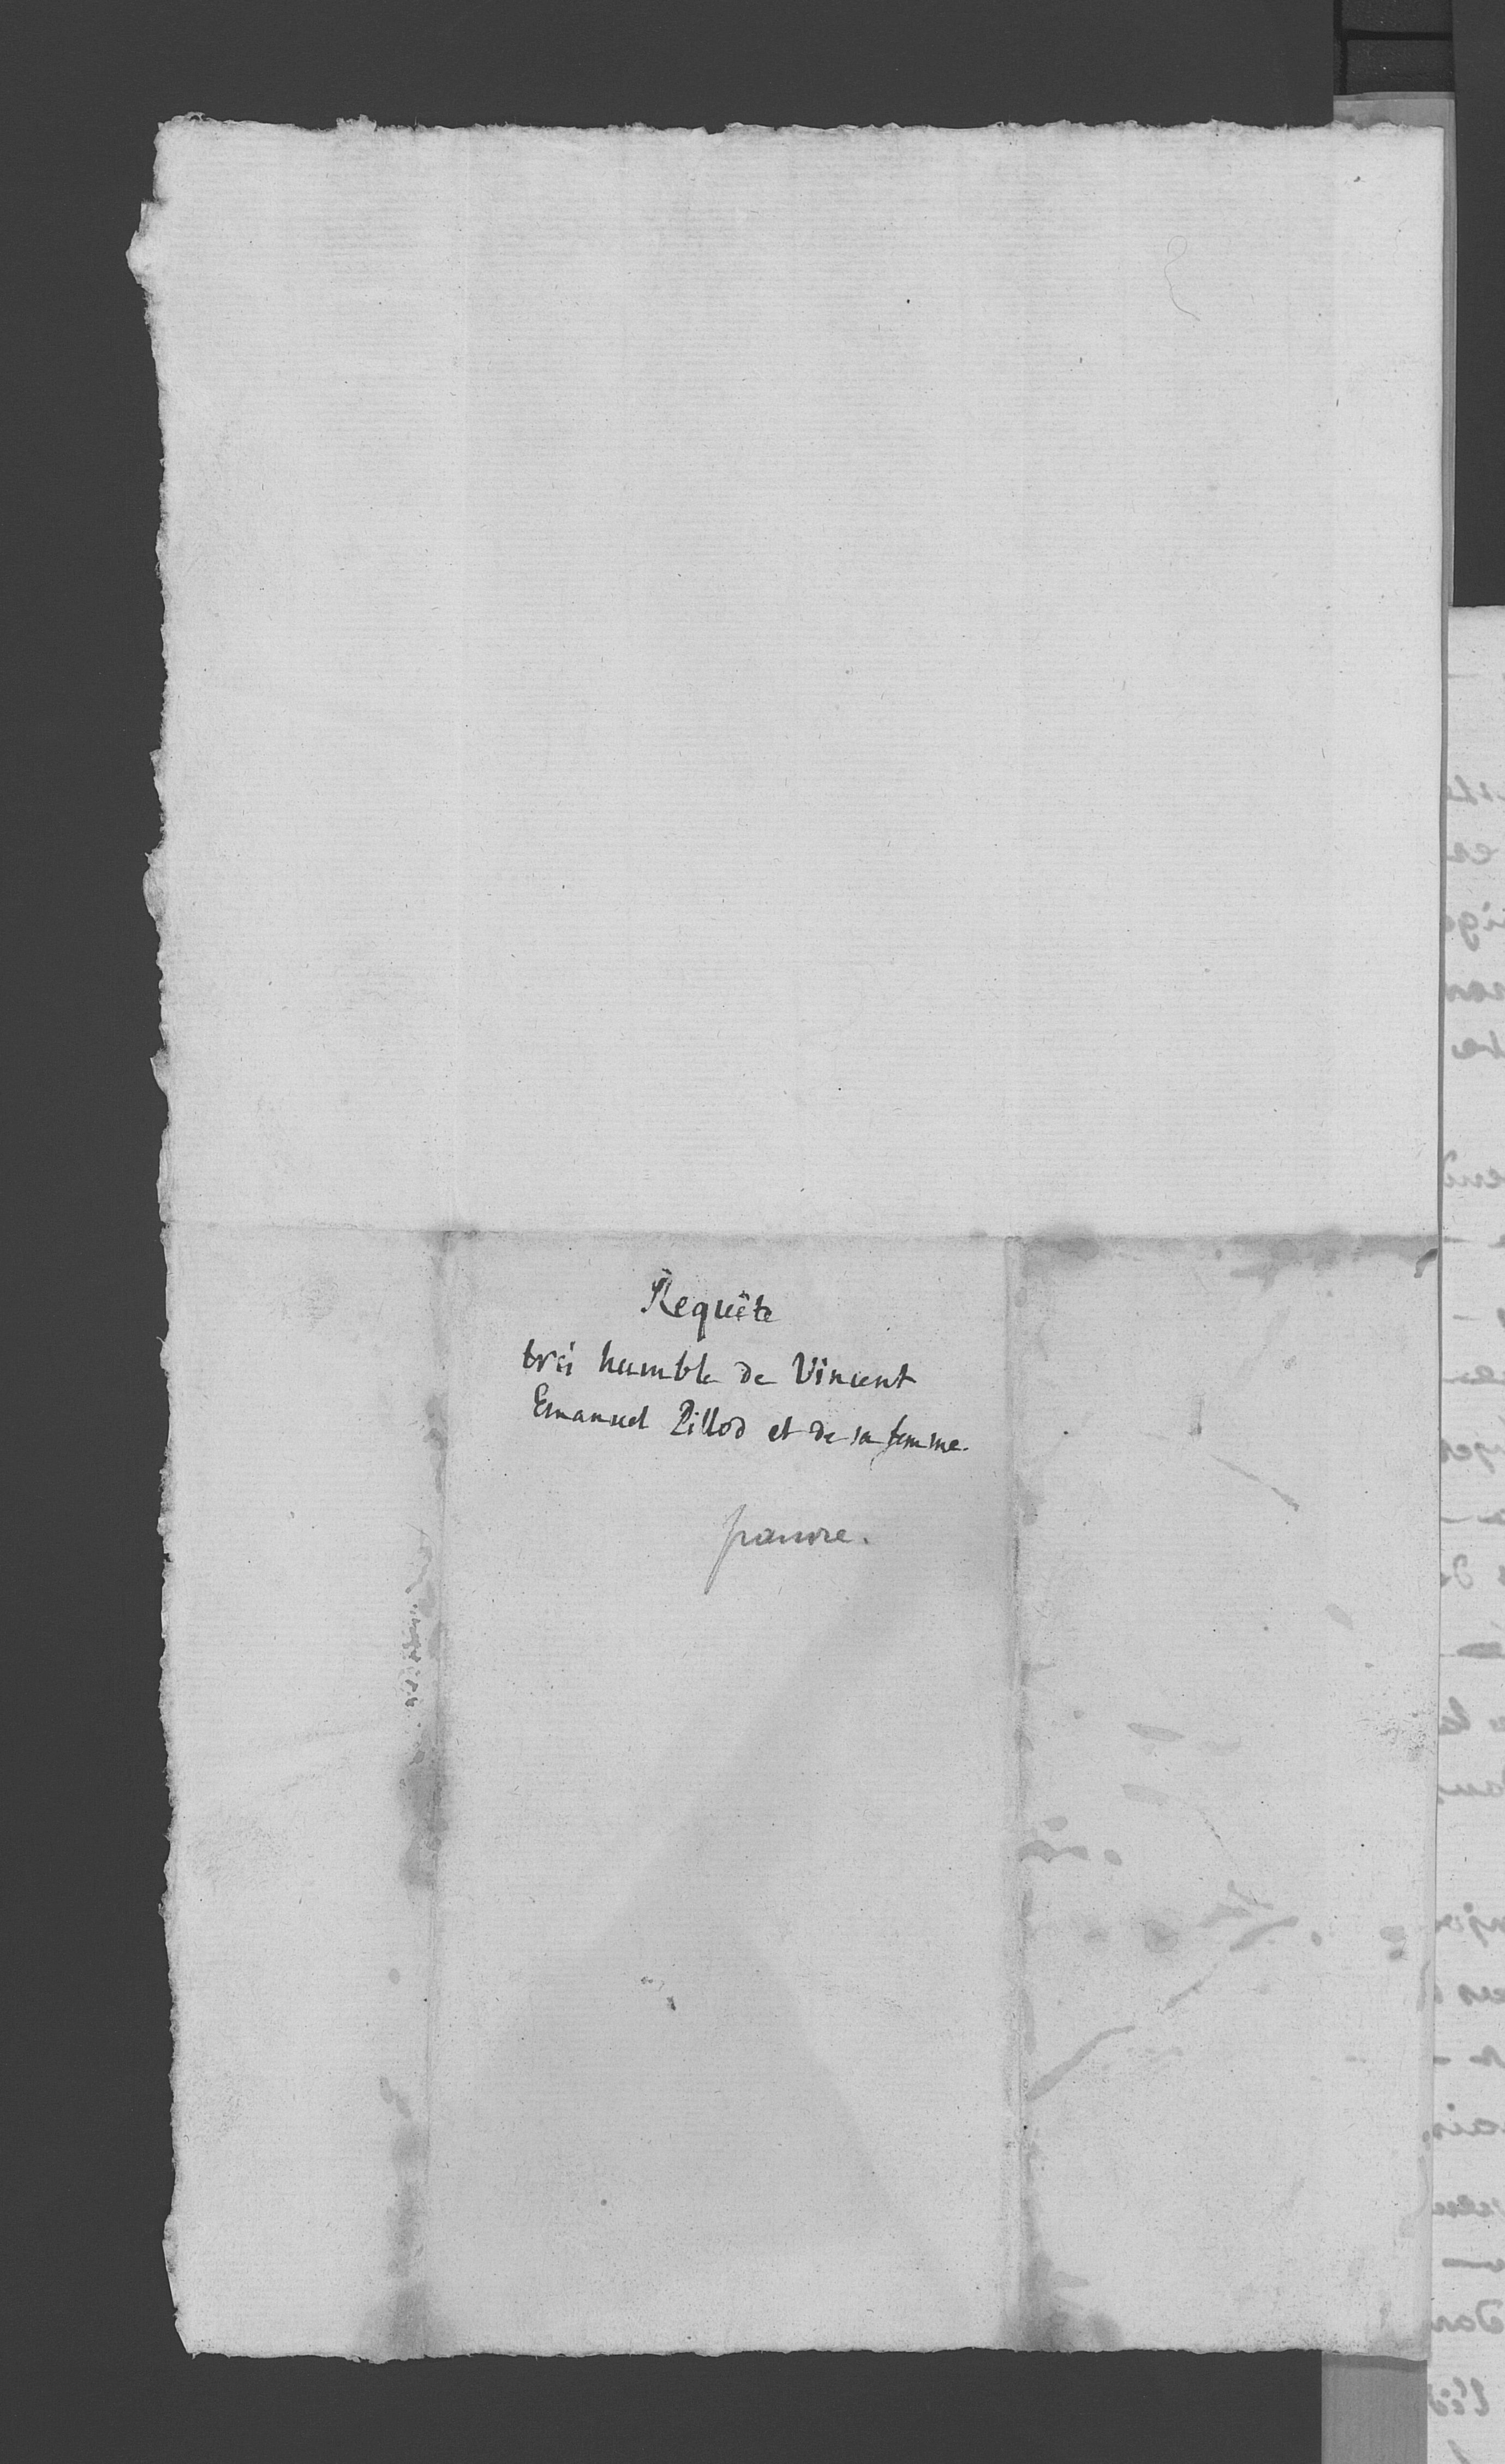 Requête
très humble de Vincent
Emanuel Pillod et de sa femme.
pauvre.